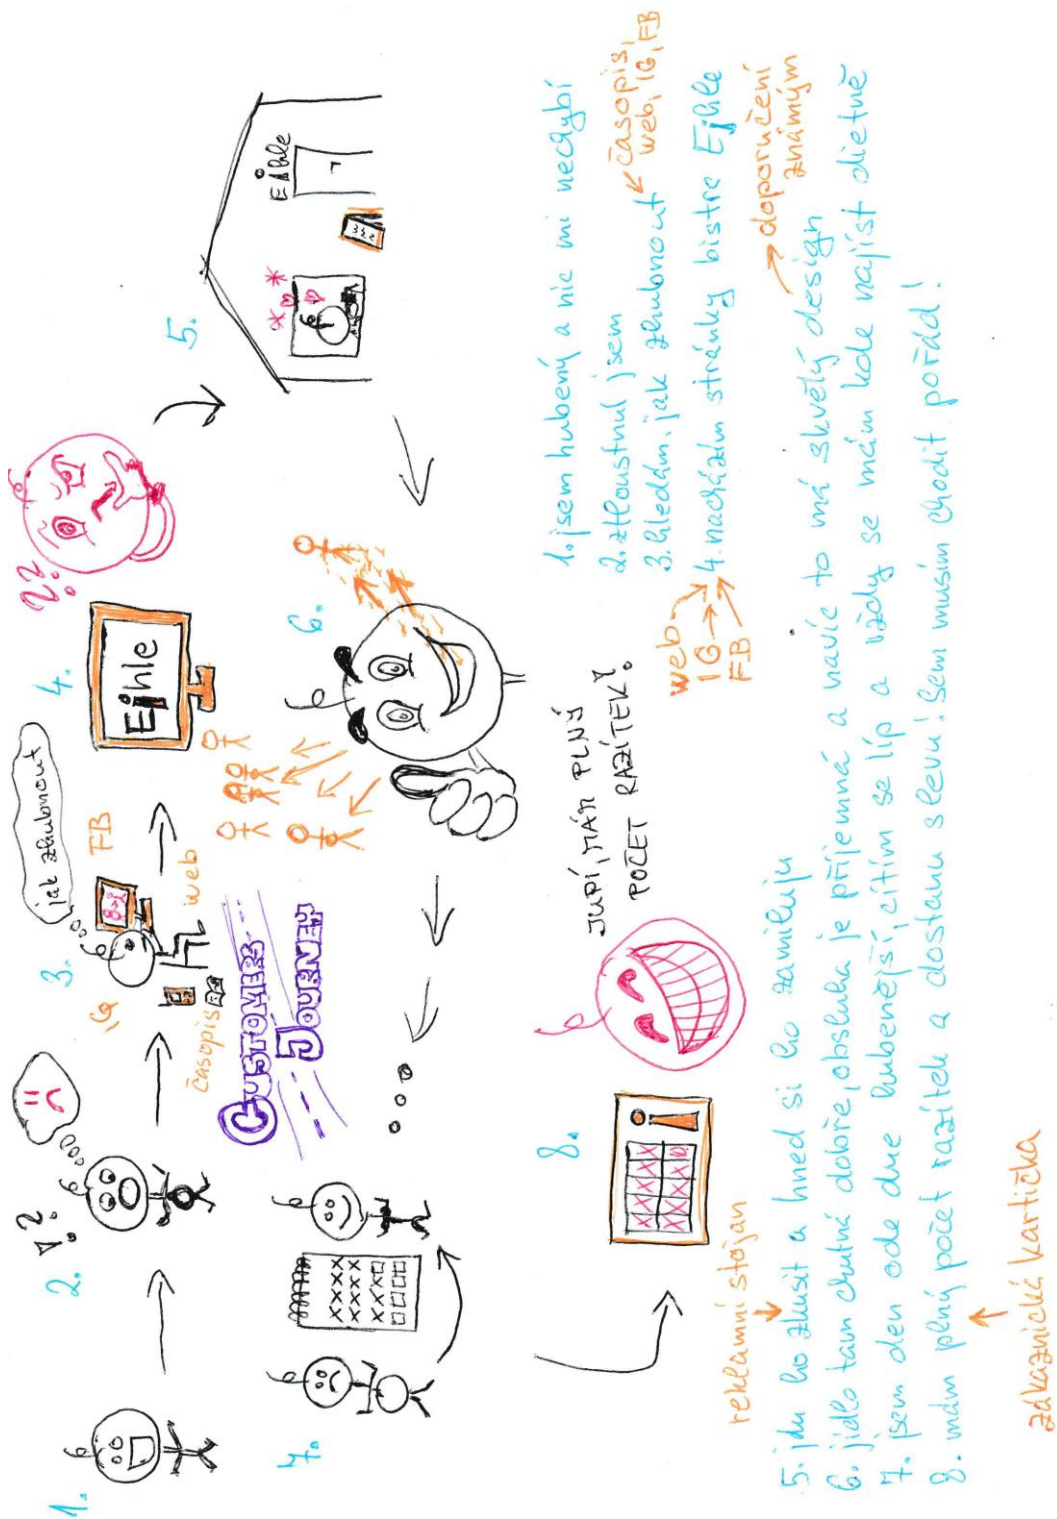 1.
2.
!?
3.
jak zhubnout
IG
FB
časopis
web
4.
Ejhle
??
5.
Ejhle
CUSTOMERS
JOURNEY
6.
7.
XXXX
XXXX
XXX
8.
XXXX
XXXX
!
JUPÍ, MÁM PLNÝ
POČET RAZÍTEK!
1. jsem hubený a nic mi nechybí
2. ztloustnul jsem
3. hledám, jak zhubnout
časopis,
web, IG, FB
4. nacházím stránky bistra Ejhle
web
IG
FB
reklamní stojan
5. jdu ho zkusit a hned si ho zamiluju
6. jídlo tam chutná dobře, obsluha je příjemná a navíc to má skvělý design
doporučení
známým
7. jsem den ode dne hubenější, cítím se líp a vždy se mám kde najíst dietně
8. mám plný počet razítek a dostanu slevu! Sem musím chodit pořád!
zákaznická kartička